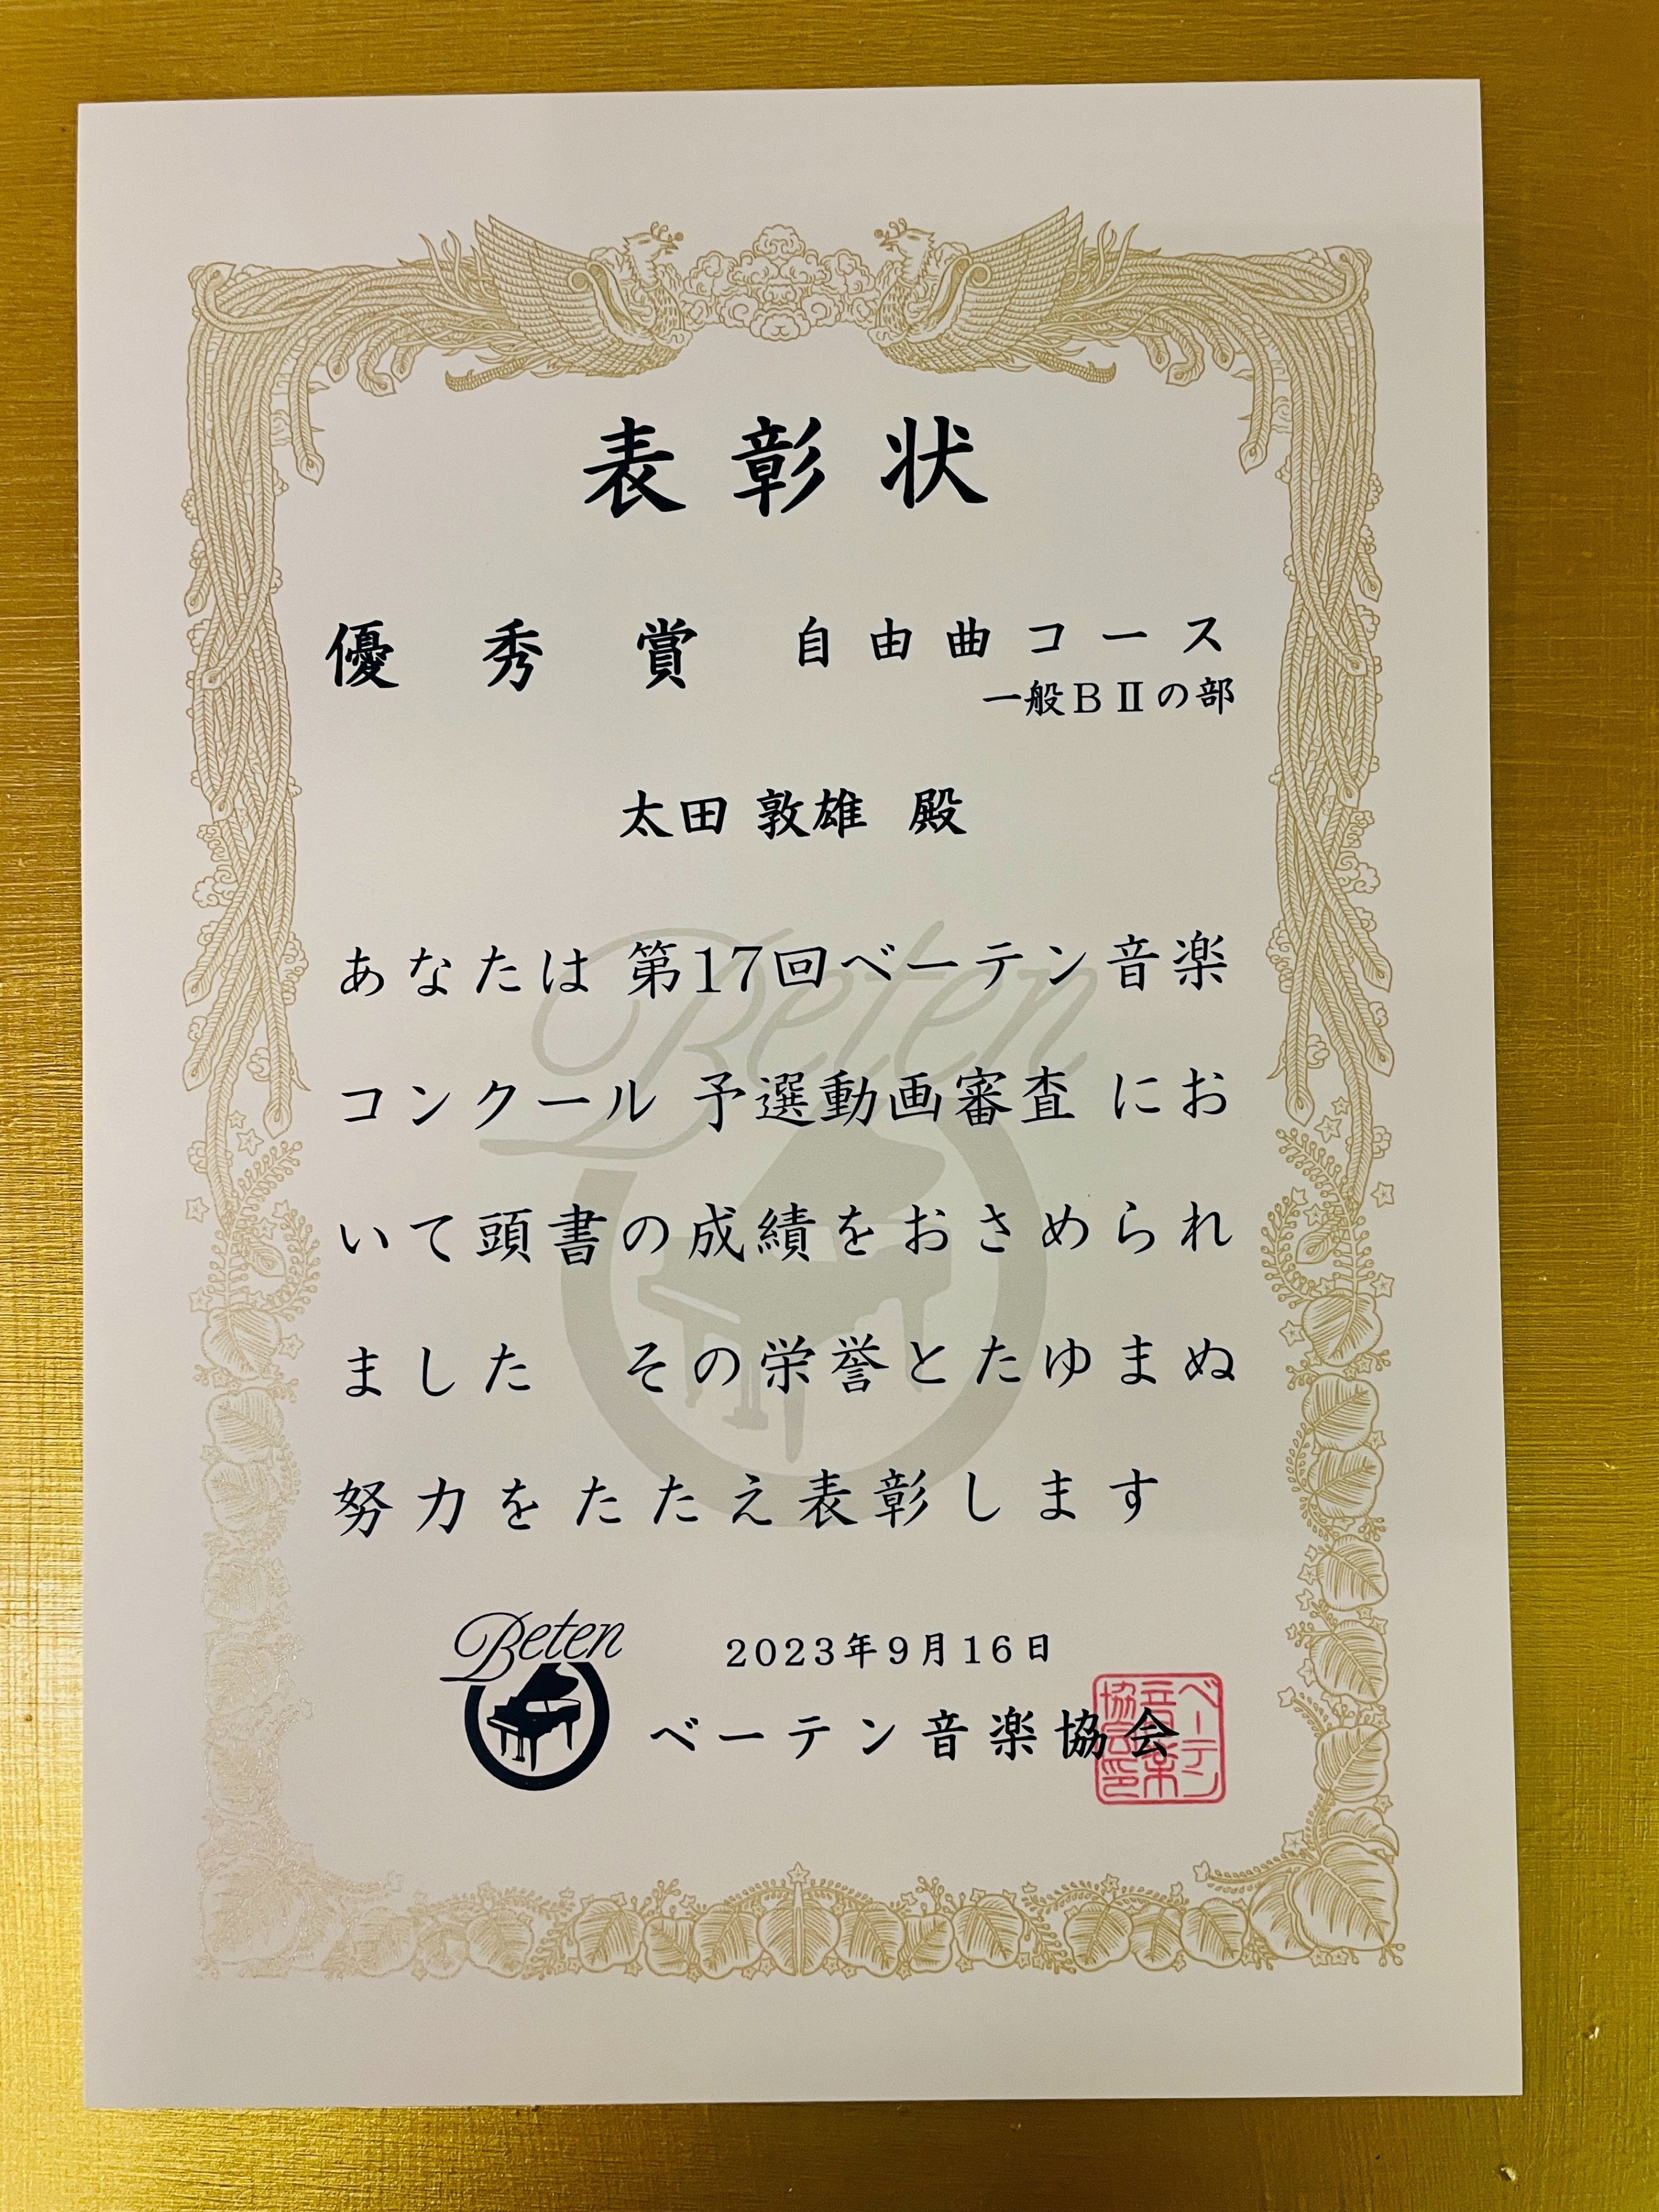 表彰状
優秀賞 自由曲コース
一般BⅡの部
太田 敦雄 殿
Beten
あなたは 第17回ベーテン音楽
コンクール 予選動画審査 にお
いて頭書の成績をおさめられ
ました その栄誉とたゆまぬ
努力をたたえ表彰します
Beten
2023年9月16日
ベーテン音楽協会
ベーテン
音楽
協会印